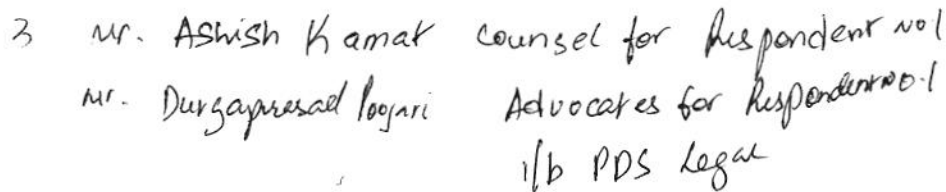 3 Mr. Ashish Kamat Counsel for Respondent No 1
Mr. Durgaprasad Poojari Advocates for Respondent No.1
i/b PDS Legal